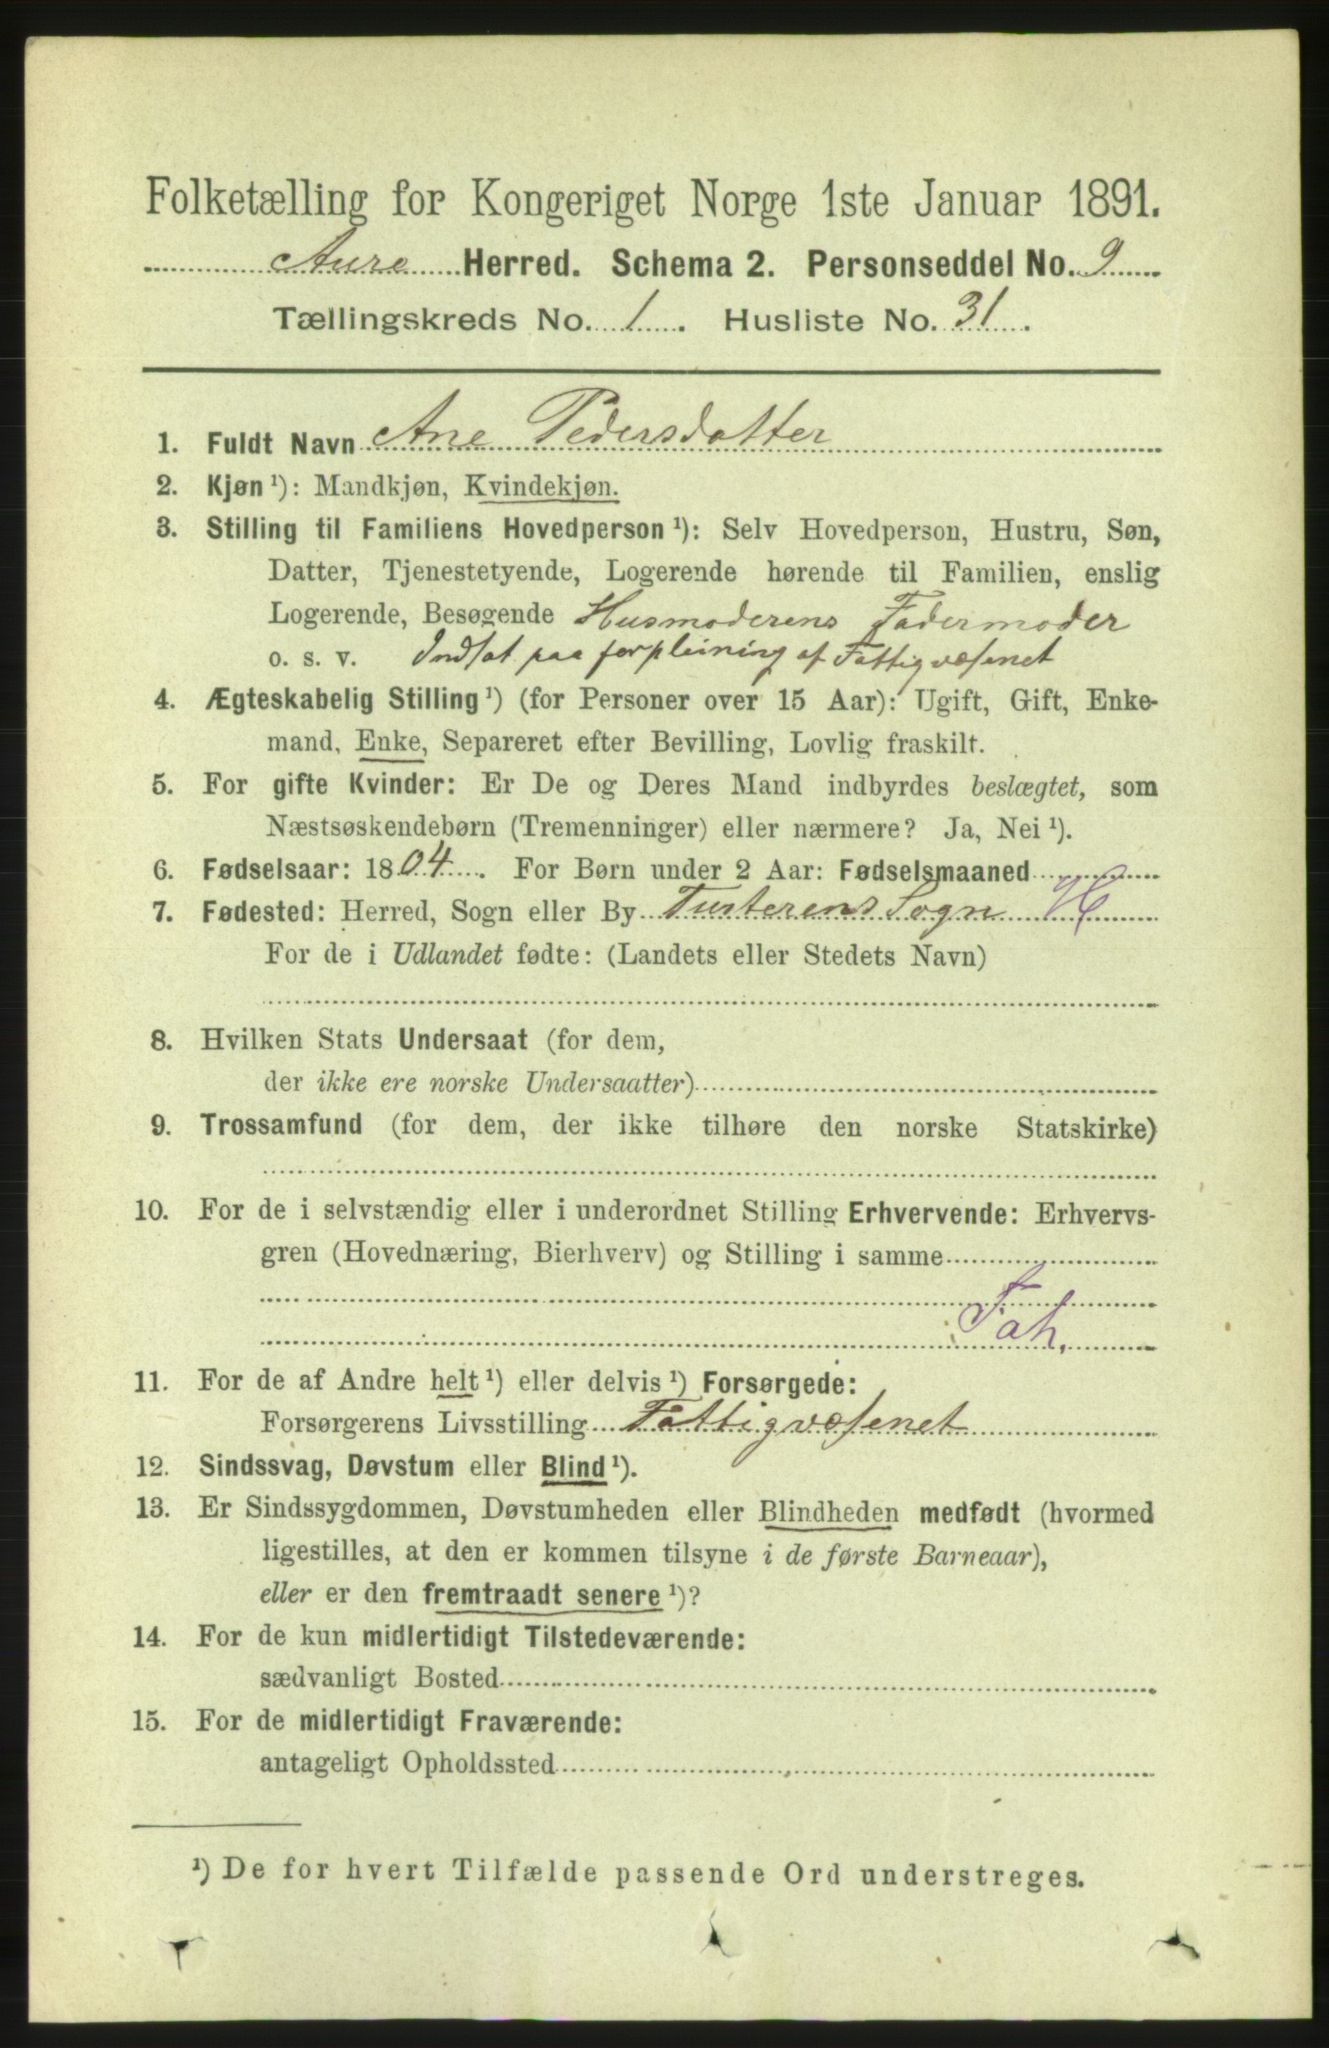 Folketælling for Kongeriget Norge 1ste Januar 1891.
Aure Herred. Schema 2. Personseddel No. 9
Tællingskreds No. 1. Husliste No. 31.
1. Fuldt Navn Ane Pedersdatter
2. Kjøn ¹): Mandkjøn, Kvindekjøn.
3. Stilling til Familiens Hovedperson ¹): Selv Hovedperson, Hustru, Søn,
Datter, Tjenestetyende, Logerende hørende til Familien, enslig
Logerende, Besøgende Husmoderens Fadermoder
o. s. v. Indsat paa forpleining af Fattigvæsenet
4. Ægteskabelig Stilling ¹) (for Personer over 15 Aar): Ugift, Gift, Enke-
mand, Enke, Separeret efter Bevilling, Lovlig fraskilt.
5. For gifte Kvinder: Er De og Deres Mand indbyrdes beslægtet, som
Næstsøskendebørn (Tremenninger) eller nærmere? Ja, Nei ¹).
6. Fødselsaar: 1804. For Børn under 2 Aar: Fødselsmaaned
7. Fødested: Herred, Sogn eller By Tusterens Sogn H
For de i Udlandet fødte: (Landets eller Stedets Navn)
8. Hvilken Stats Undersaat (for dem,
der ikke ere norske Undersaatter)
9. Trossamfund (for dem, der ikke tilhøre den norske Statskirke)
10. For de i selvstændig eller i underordnet Stilling Erhvervende: Erhvervs-
gren (Hovednæring, Bierhverv) og Stilling i samme
Fah.
11. For de af Andre helt ¹) eller delvis ¹) Forsørgede:
Forsørgerens Livsstilling Fattigvæsenet
12. Sindssvag, Døvstum eller Blind ¹).
13. Er Sindssygdommen, Døvstumheden eller Blindheden medfødt (hvormed
ligestilles, at den er kommen tilsyne i de første Barneaar),
eller er den fremtraadt senere ¹)?
14. For de kun midlertidigt Tilstedeværende:
sædvanligt Bosted
15. For de midlertidigt Fraværende:
antageligt Opholdssted
¹) De for hvert Tilfælde passende Ord understreges.